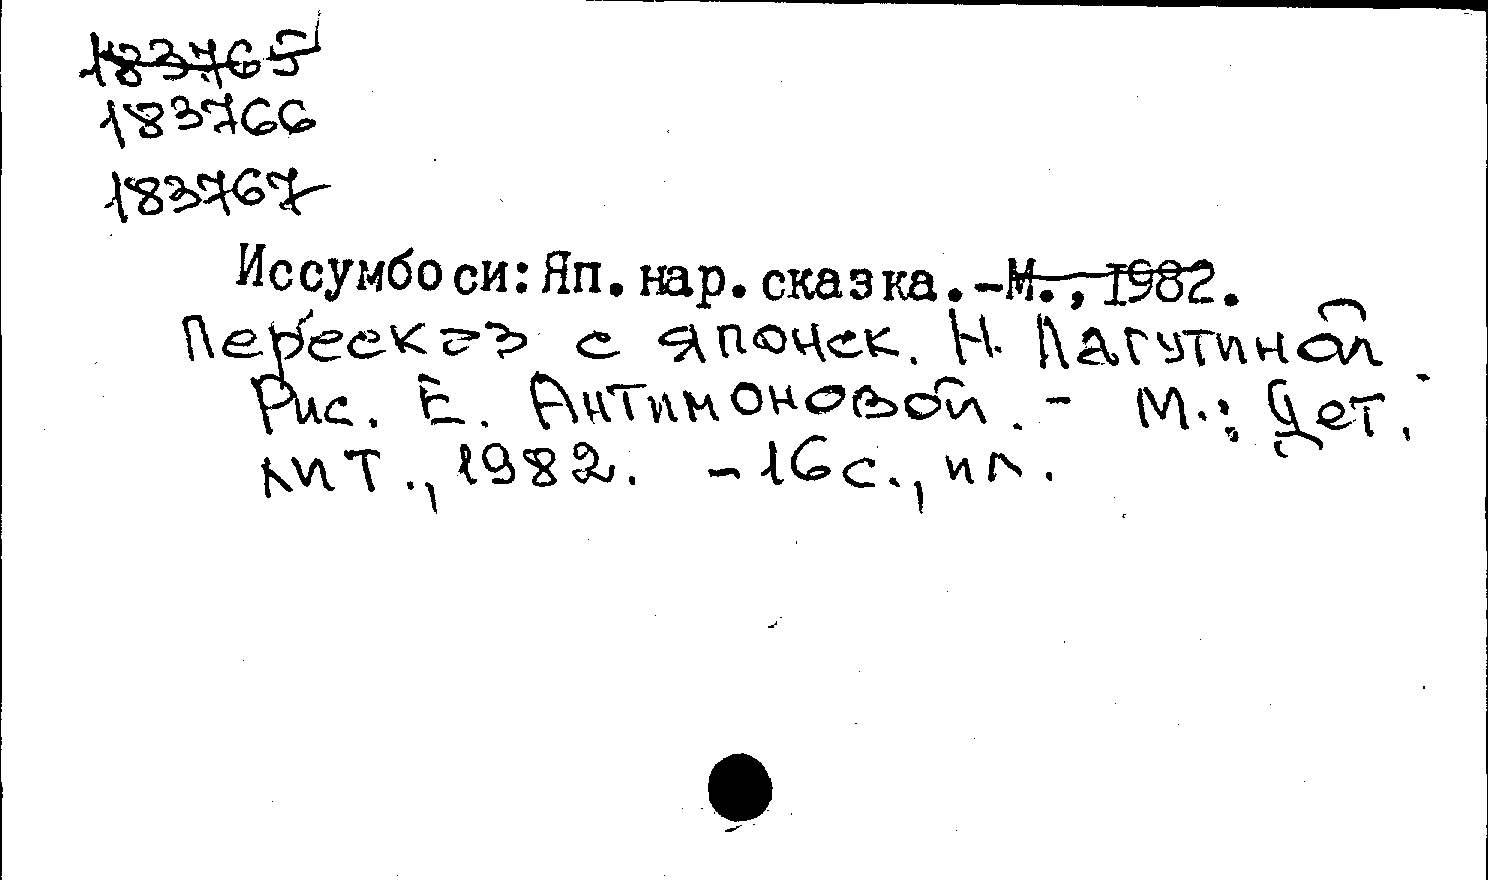 183765
183766
183767
Иссумбоси: Яп. нар. сказка. - М., 1982.
Пересказ с японск. Н. Лагутиной.
Рис. Е. Антимоновой. - М.: Дет.
лит., 1982. - 16 с., ил.